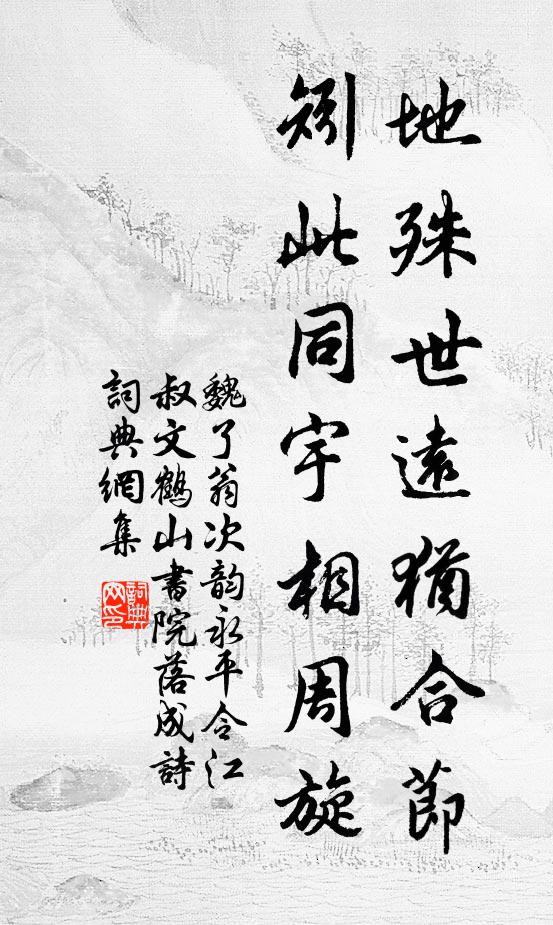 地殊世遠猶合節
矧此同宇相周旋
魏了翁次韵永平令江
叔文鶴山書院落成詩
詞典網集
詞典網印